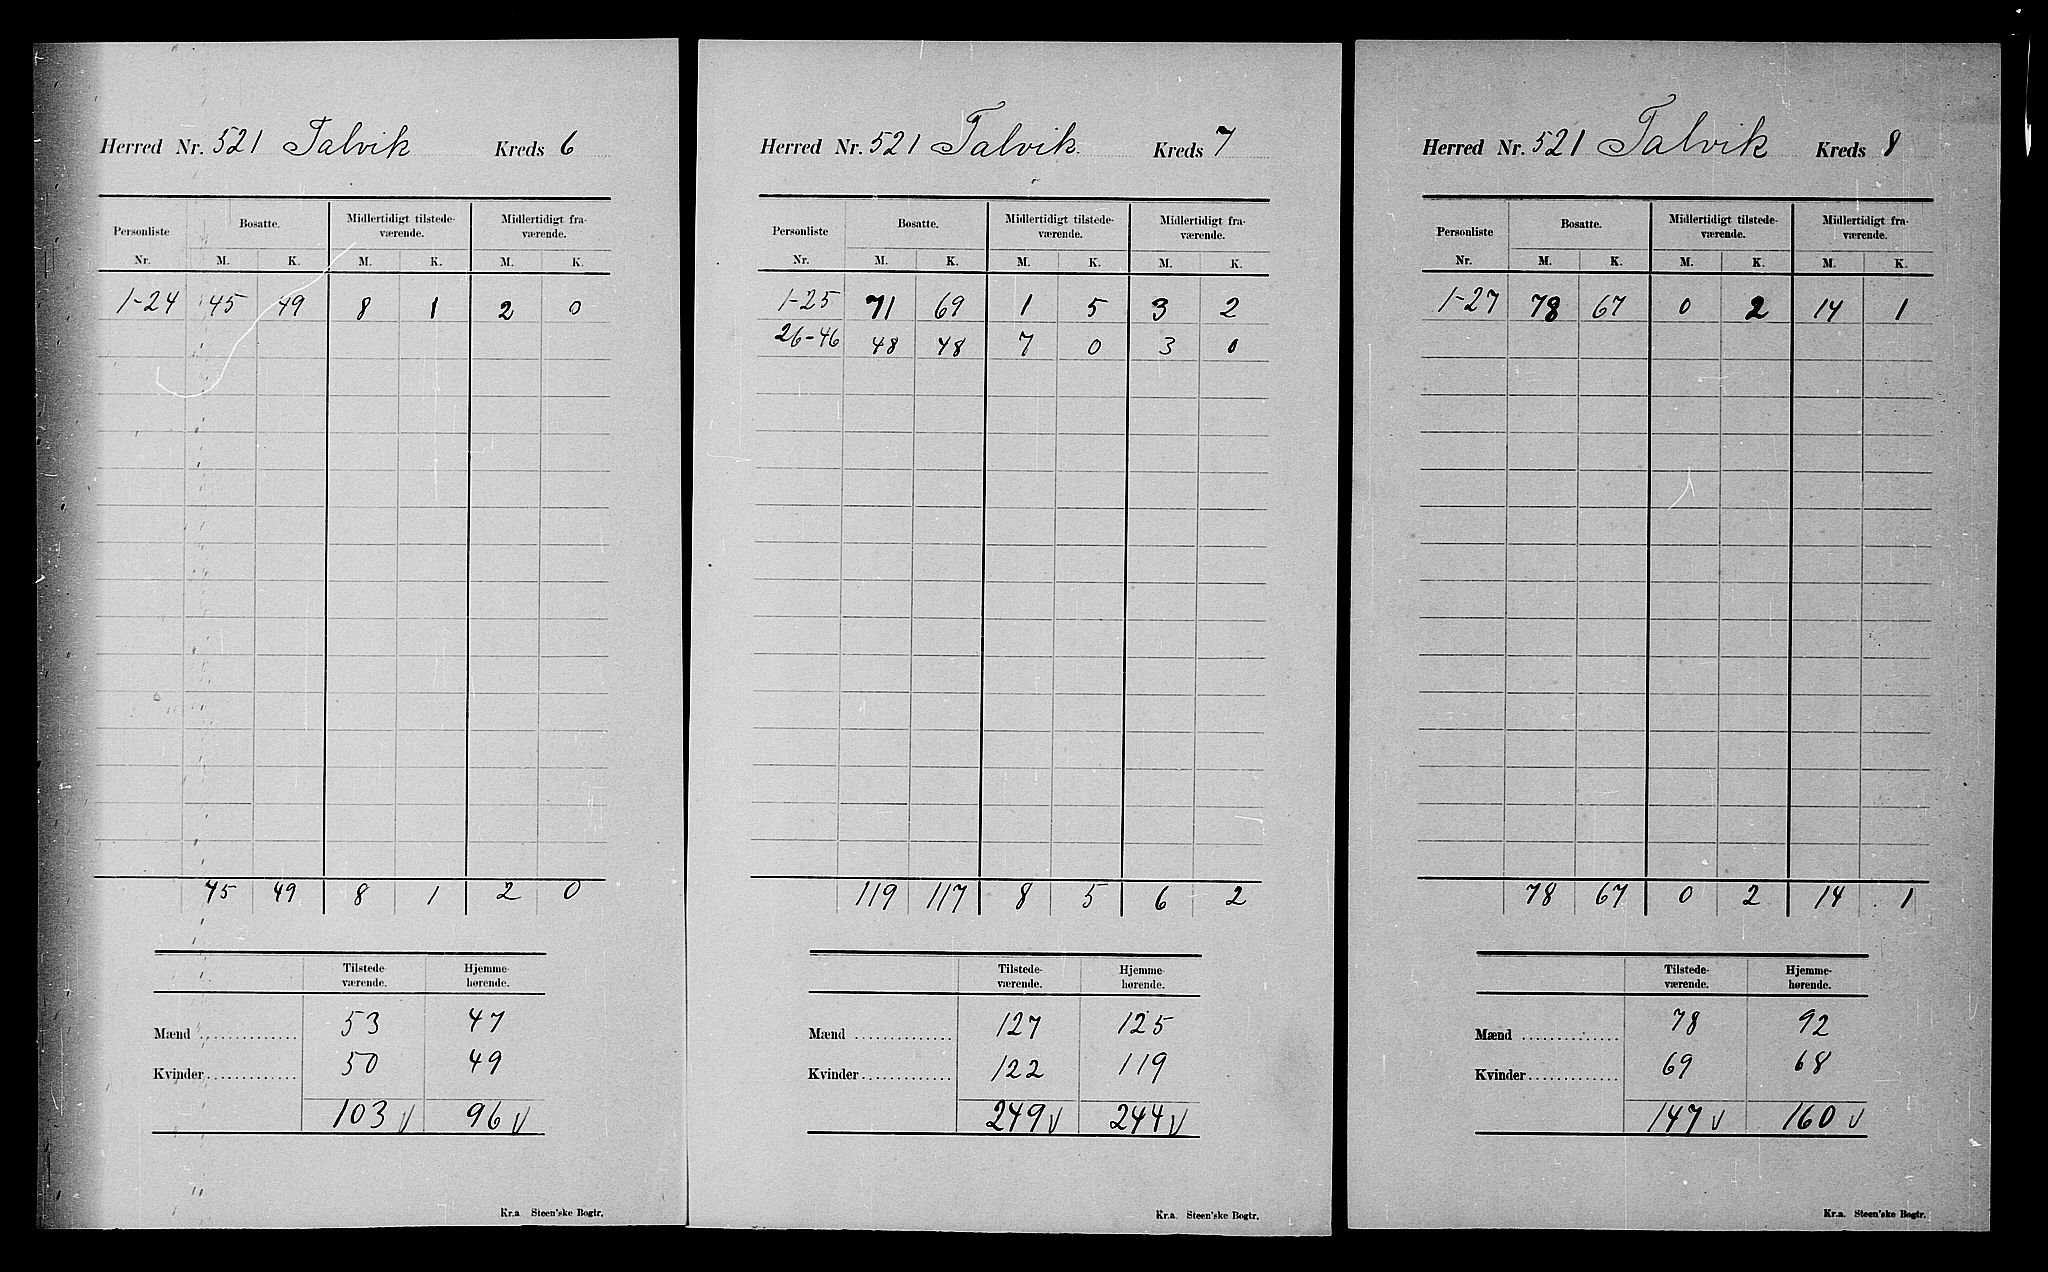 Herred Nr. 521 Talvik Kreds 6
Personliste Bosatte. Midlertidigt tilstede- Midlertidigt fra-
værende. værende.
Nr. M. K. M. K. M. K.
1-24 45 49 8 1 2 0
45 49 8 1 2 0
Tilstede- Hjemme-
værende. hørende.
Mænd 53 47
Kvinder 50 49
103 v 96 v
Kr.a. Steen'ske Bogtr.
Herred Nr. 521 Talvik. Kreds 7
Personliste Bosatte. Midlertidigt tilstede- Midlertidigt fra-
værende. værende.
Nr. M. K. M. K. M. K.
1-25 71 69 1 5 3 2
26-46 48 48 7 0 3 0
119 117 8 5 6 2
Tilstede- Hjemme-
værende. hørende.
Mænd 127 125
Kvinder 122 119
249 v 244 v
Kr.a. Steen'ske Bogtr.
Herred Nr. 521 Talvik Kreds 8
Personliste Bosatte. Midlertidigt tilstede- Midlertidigt fra-
værende. værende.
Nr. M. K. M. K. M. K.
1-27 78 67 0 2 14 1
78 67 0 2 14 1
Tilstede- Hjemme-
værende. hørende.
Mænd 78 92
Kvinder 69 68
147 v 160 v
Kr.a. Steen'ske Bogtr.